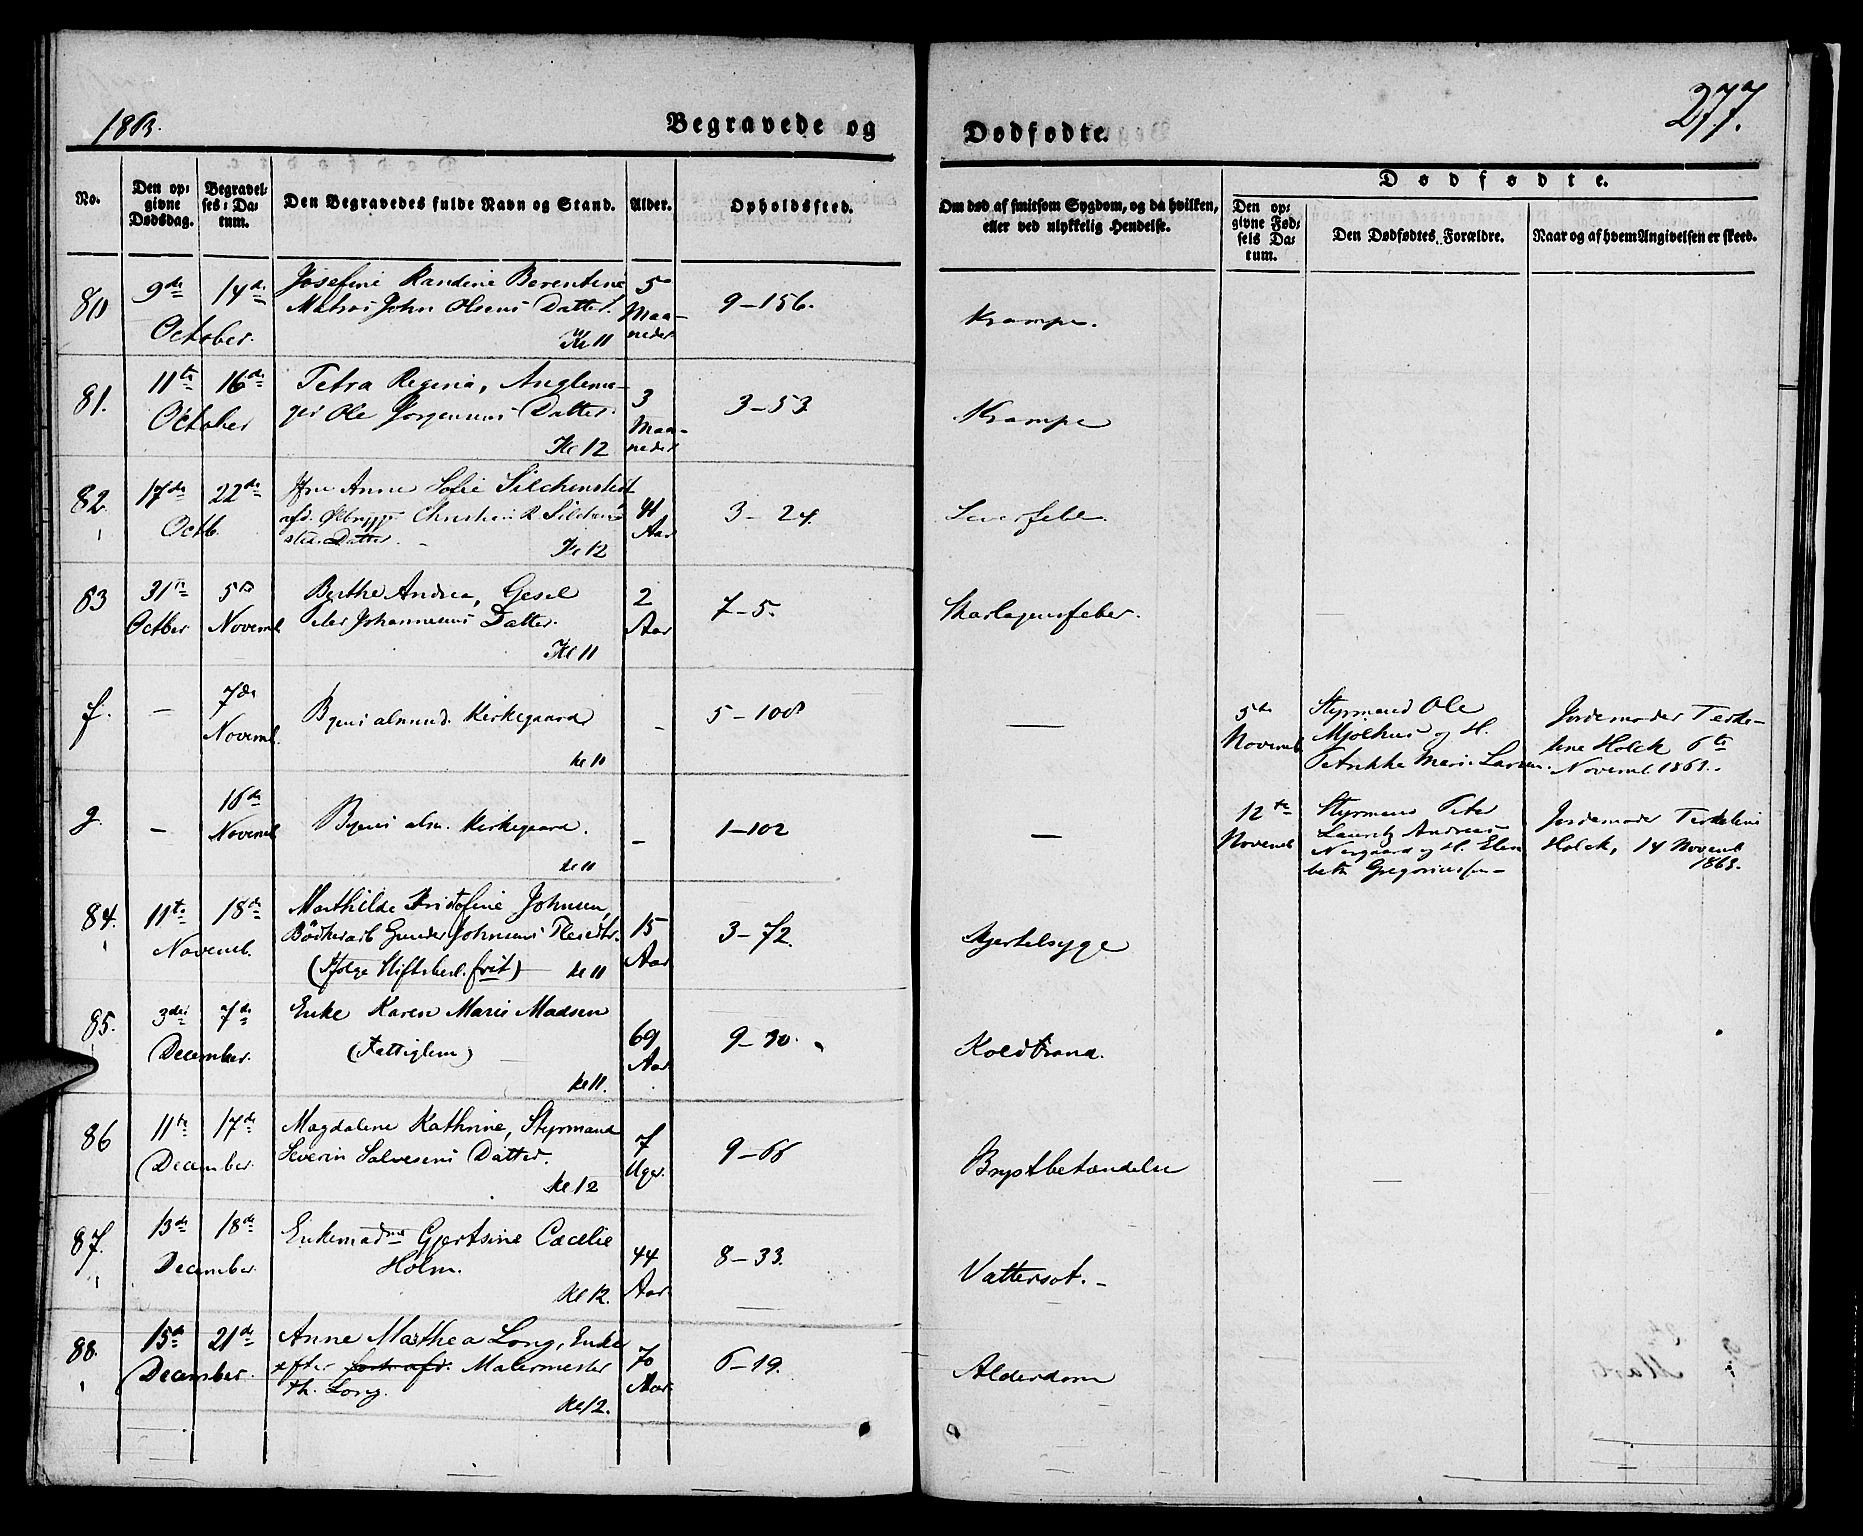 1863.
Begravede og
Dødfødte.
277.
No.
Den op-
givne
Dødsdag.
Begravel-
ses-Da-
tum.
Den Begravedes fulde Navn og Stand.
Alder.
Opholdssted.
Om død af smitsom Sygdom, og da hvilken,
eller ved ulykkelig Hendelse.
Dødfødte.
Den op-
givne Fød-
sels Da-
tum.
Den Dødfødtes Forældre.
Naar og af hvem Angivelsen er skeed.
80 9de 14de Josefine Randine Berentine 5 9-156. Krampe.
October. Matros John Olsens Datter. Maa-
Kl 11 neder
81. 11te 16de Petra Regina, 3 3-53 Krampe
October Ole Jørgensens Datter. Maa-
Kl 12 neder
82. 17de 22de Anne Sofie Silchenstedt 41 3-24.
Octb. afd. Christian R Aar
Datter. Kl 12
83 31te 5te Berthe Andrea, Gesel 2 7-5. Skarlagensfeber.
October Novemb Peter Johannesens Datter. Aar
Kl 11
f. - 7de Byens almind. Kirkegaard - 5-100 — 5te Styrmand Ole Jordemoder Terke-
Novemb. Novemb Mjølhus og H. line Holck 6te
kl 11 Petrikke Marie Larsen. Novemb 1863.
g. - 16de Byens alm. Kirkegaard. - 1-102 — 12te Styrmand Peter Jordemoder Terkeline
Novemb Novemb Lauritz Andreas Holck, 14 Novemb
kl 11 Nergaard og H. Elisa- 1863.
beth Gregoriussen
84. 11te 18de Mathilde Kristofine Johnsen, 15 3-72. Kjertelsyge
Novemb. Bødkerarb Gunder Johnsens Pleiedtr. Aar
(Ifølge Stiftsbesl. frit) kl 11
85. 3die 7de Enke Karen Marie Madsen 69 9-30. Koldbrand.
December. (Fattiglem) Aar
kl 11.
86 11te 17de Magdalene Kathrine, Styrmand 7 9-66 Brystbetændelse
December. Severin Salvesens Datter. Uger.
kl 12
87. 13de 18de Enkemadme Gjertsine Cæcelie 44 8-33. Vattersot.
December. Holm. Aar.
kl 12.
88. 15de 21de Anne Marthea Long, Enke 70 6-19. Alderdom
December. efter afd. Malermester Aar
Th. Long. kl 12.